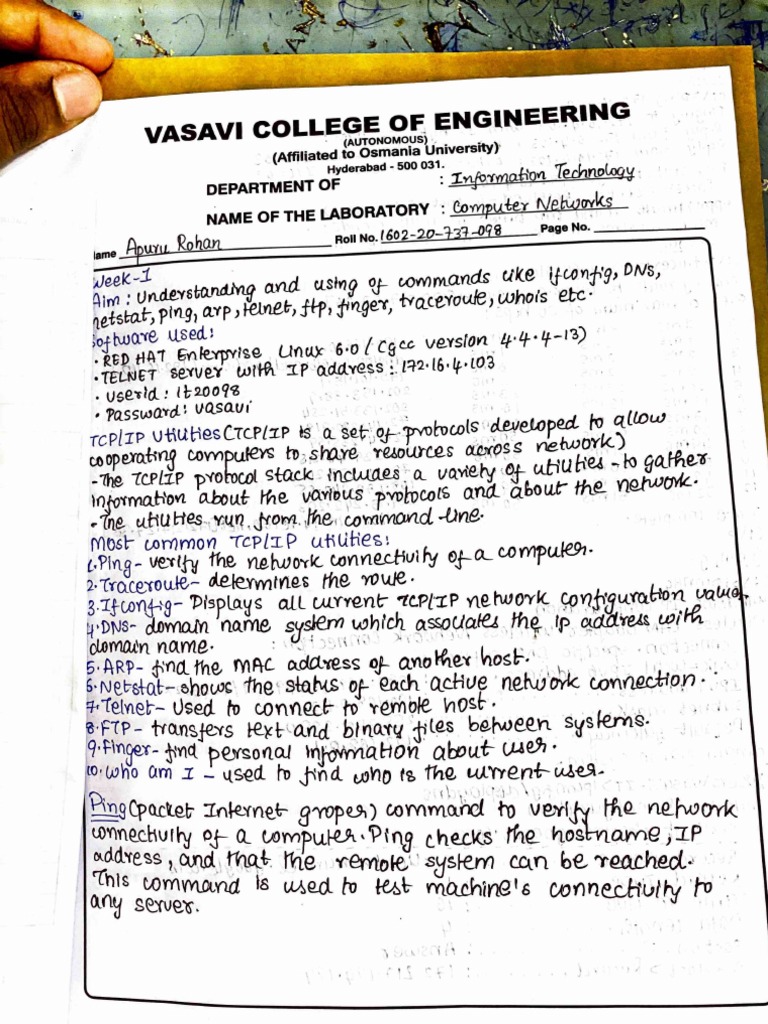 VASAVI COLLEGE OF ENGINEERING
(AUTONOMOUS)
(Affiliated to Osmania University)
Hyderabad - 500 031.
DEPARTMENT OF : Information Technology
NAME OF THE LABORATORY : Computer Networks
ame Apuru Rohan Roll No. 1602-20-737-098 Page No.
Week-1
Aim : Understanding and using of commands like ifconfig, DNS,
netstat, ping, arp, telnet, ftp, finger, traceroute, whois etc.
Software used:
• RED HAT Enterprise Linux 6.0 / (gcc version 4.4.4-13)
• TELNET server with IP address : 172.16.4.103
• userid : it20098
• Password: vasavi
TCP/IP Utilities (TCP/IP is a set of protocols developed to allow
cooperating computers to share resources across network)
-The TCP/IP protocol stack includes a variety of utilities -to gather
information about the various protocols and about the network.
-The utilities run from the command-line.
Most common TCP/IP utilities:
1. Ping- verify the network connectivity of a computer.
2. Traceroute- determines the route.
3. Ifconfig- Displays all current TCP/IP network configuration values.
4. DNS- domain name system which associates the ip address with
domain name.
5. ARP- find the MAC address of another host.
6. Netstat- shows the status of each active network connection.
7. Telnet- Used to connect to remote host.
8. FTP- transfers text and binary files between systems.
9. Finger- find personal information about user.
10. Who am I - used to find who is the current user.
Ping (packet Internet groper) command to verify the network
connectivity of a computer. Ping checks the hostname, IP
address, and that the remote system can be reached.
This command is used to test machine's connectivity to
any server.